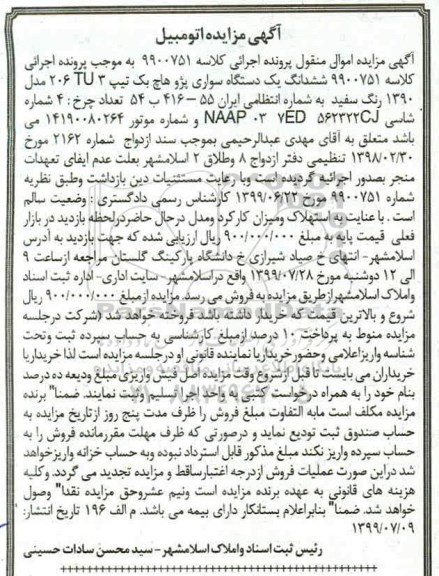 آگهی مزایده اتومبیل
آگهی مزایده اموال منقول پرونده اجرائی کلاسه ۹۹۰۰۷۵۱ به موجب پرونده اجرائی
کلاسه ۹۹۰۰۷۵۱ ششدانگ یک دستگاه سواری پژو هاچ بک تیپ ۲۰۶ TU ۳ مدل
۱۳۹۰ رنگ سفید به شماره انتظامی ایران ۵۵ - ۴۱۶ ب ۵۴ تعداد چرخ: ۴ شماره
شاسی NAAP ۰۳ ۷ED ۵۶۲۳۲۲CJ و شماره موتور ۱۴۱۹۰۰۸۰۲۶۴ می
باشد متعلق به آقای مهدی عبدالرحیمی بموجب سند ازدواج شماره ۲۱۶۲ مورخ
۱۳۹۸/۰۲/۳۰ تنظیمی دفتر ازدواج ۸ وطلاق ۲ اسلامشهر بعلت عدم ایفای تعهدات
منجر بصدور اجرائیه گردیده است وبا رعایت مستثنیات دین بازداشت وطبق نظریه
شماره ۹۹۰۰۷۵۱ مورخ ۱۳۹۹/۰۶/۲۳ کارشناس رسمی دادگستری : وضعیت سالم
است . با عنایت به استهلاک ومیزان کارکرد ومدل درحال حاضردرلحظه بازدید در بازار
فعلی قیمت پایه به مبلغ ۹۰۰/۰۰۰/۰۰۰ ریال ارزیابی شده که جهت بازدید به آدرس
اسلامشهر- انتهای خ صیاد شیرازی خ دانشگاه پارکینگ گلستان مراجعه ازساعت ۹
الی ۱۲ دوشنبه مورخ ۱۳۹۹/۰۷/۲۸ واقع دراسلامشهر- سایت اداری- اداره ثبت اسناد
واملاک اسلامشهرازطریق مزایده به فروش می رسد. مزایده ازمبلغ ۹۰۰/۰۰۰/۰۰۰ ریال
شروع و بالاترین قیمت که خریدار داشته باشد فروخته خواهد شد (شرکت درجلسه
مزایده منوط به پرداخت ۱۰ درصد ازمبلغ کارشناسی به حساب سپرده ثبت وتحت
شناسه واریزاعلامی وحضورخریداریا نماینده قانونی او درجلسه مزایده است لذا خریداریا
خریداران می بایست تا قبل ازشروع وقت مزایده اصل فیش واریزی مبلغ ودیعه ده درصد
بنام خود را به همراه درخواست کتبی به واحد اجرا تسلیم وثبت نمایند. ضمنا" برنده
مزایده مکلف است مابه التفاوت مبلغ فروش را ظرف مدت پنج روز ازتاریخ مزایده به
حساب صندوق ثبت تودیع نماید و درصورتی که ظرف مهلت مقررمانده فروش را به
حساب سپرده واریز نکند مبلغ مذکور قابل استرداد نبوده وبه حساب خزانه واریزخواهد
شد دراین صورت عملیات فروش ازدرجه اعتبارساقط و مزایده تجدید می گردد. وکلیه
هزینه های قانونی به عهده برنده مزایده است ونیم عشروحق مزایده نقدا" وصول
خواهد شد. ضمنا" بنابراعلام بستانکار دارای بیمه می باشد. م الف ۱۹۶ تاریخ انتشار:
۱۳۹۹/۰۷/۰۹
رئیس ثبت اسناد واملاک اسلامشهر - سید محسن سادات حسینی